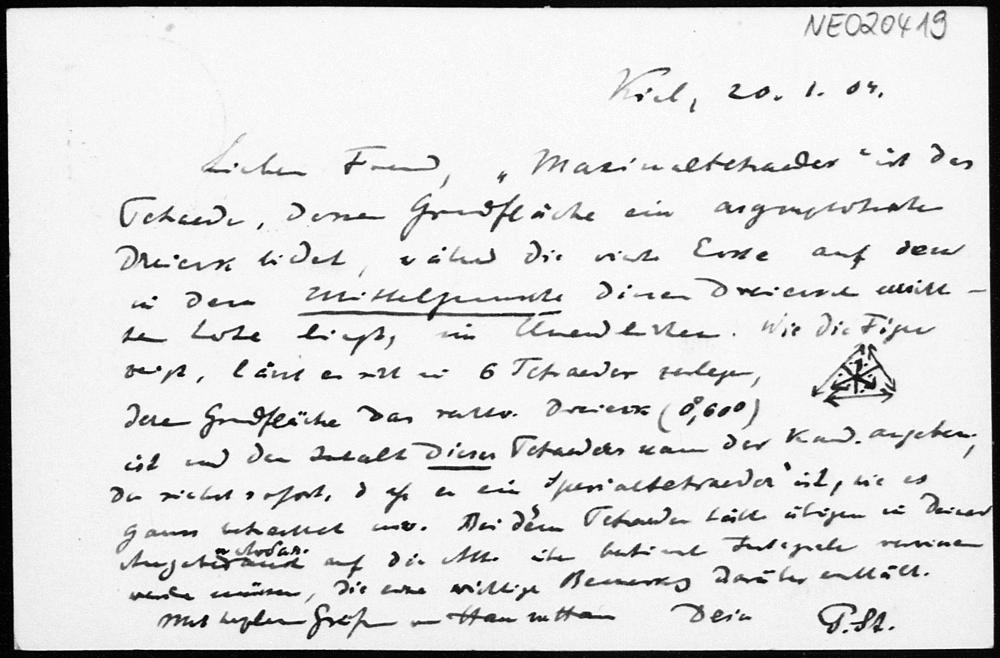 NEO20419
Kiel, 20. 1. 04.
Lieber Freund, „Maximaltetraeder" ist das
Tetraeder, dessen Grundfläche ein asymptotisches
Dreieck bildet, während die vierte Ecke auf dem
in dem Mittelpunkte dieses Dreiecks errich-
ten Lote liegt, im Unendlichen. Wie die Figur
zeigt, lässt es sich in 6 Tetraeder zerlegen,
deren Grundfläche das rechtw. Dreieck (0, 60°)
ist und den Inhalt dieses Tetraeders kann der Kand. angeben;
Du siehst sofort, daß es ein „Spezialtetraeder" ist, wie es
Gauss betrachtet usw. Bei dem Tetraeder hätte übrigens in Deiner
auf die über bestimmte Integrale verwiesen
werden müssen, die eine wichtige Bemerkung darüber enthält.
Mit besten Grüßen von Haus zu Haus Dein P. St.